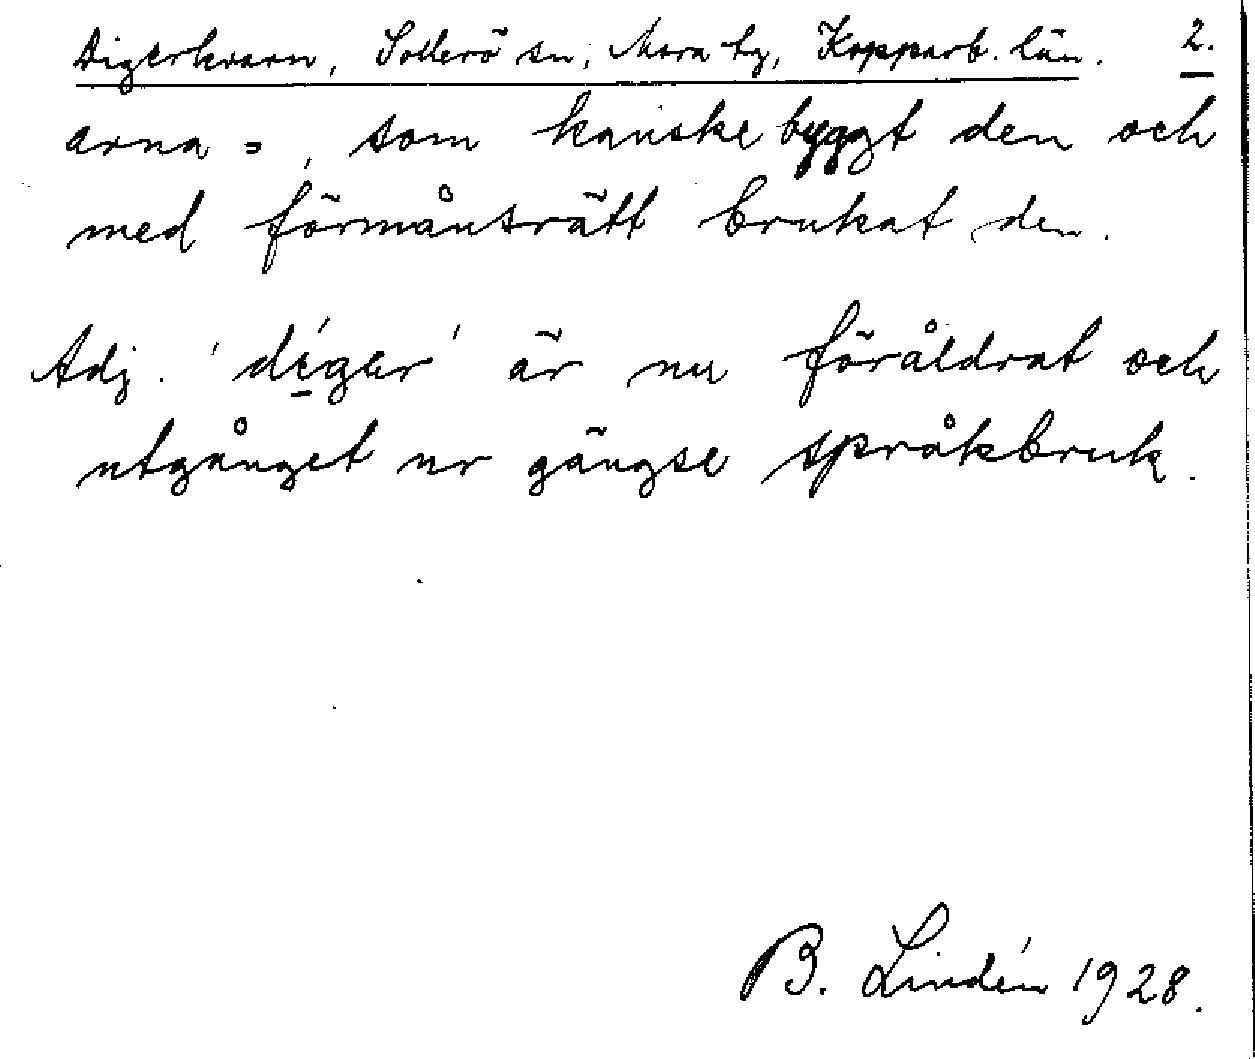 Digerkvarn, Sollerö sn, Mora tg, Kopparb. län. 2.
arna =, som kanske byggt den och
med förmånsrätt brukat den.
Adj. 'díger' är nu föråldrat och
utgånget ur gängse språkbruk.
B. Lindén 1928.